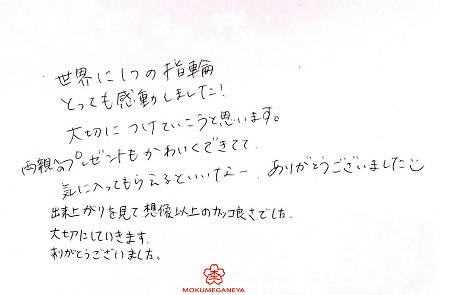 世界に1つの指輪
とっても感動しました!
大切につけていこうと思います。
両親へのプレゼントもかわいくできてて
気に入ってもらえるといいなー ありがとうございました
出来上がりを見て想像以上のカッコ良さでした。
大切にしていきます。
ありがとうございました。
MOKUMEGANEYA